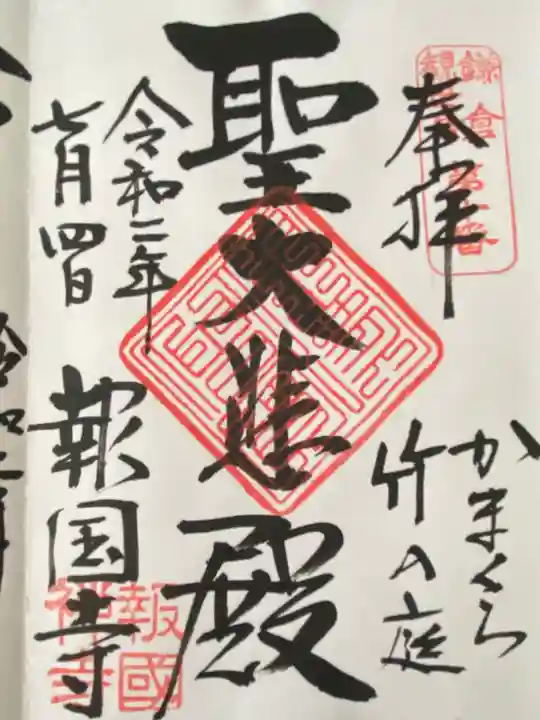 奉拝
かまくら
竹の庭
聖大悲殿
令和二年
七月四日
報国寺
鎌倉第十番
報國
禅寺
令和二年